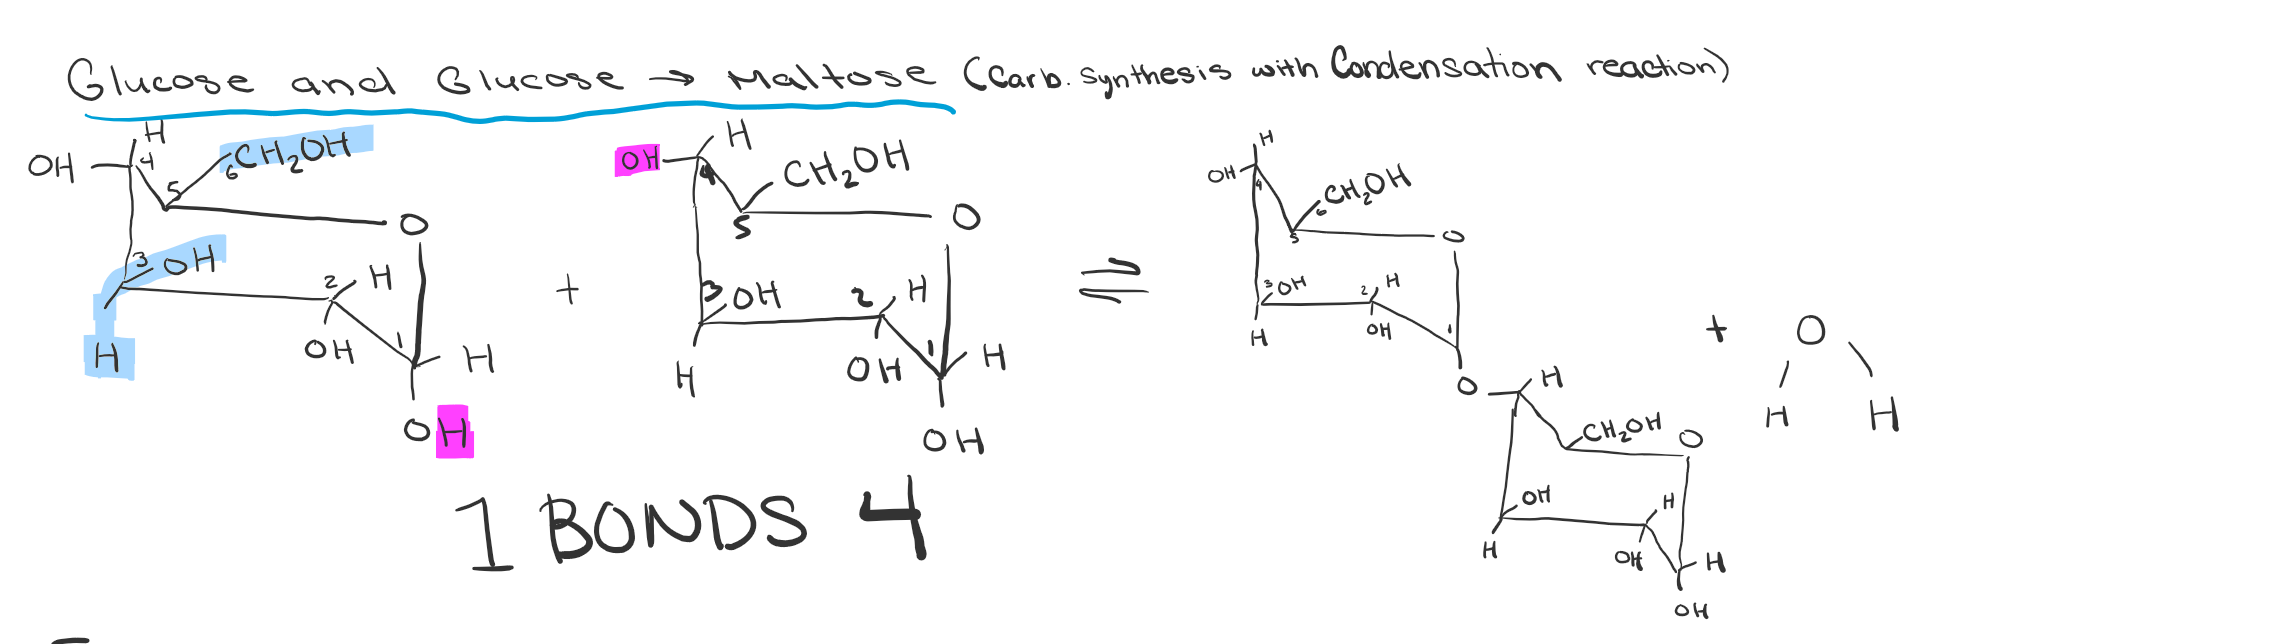 Glucose and Glucose → Maltose (Carb. Synthesis with Condensation reaction)
H
OH 4 6 CH2OH
5
O
3 OH
2 H
H OH 1 H
OH
+
H
OH 4 CH2OH
5 O
3 OH 2 H
H OH 1 H
OH
⇌
H
OH 4 6 CH2OH
5 O
3 OH 2 H
H OH 1
O H
CH2OH O
OH H
H OH H
OH
+ O
H H
1 BONDS 4